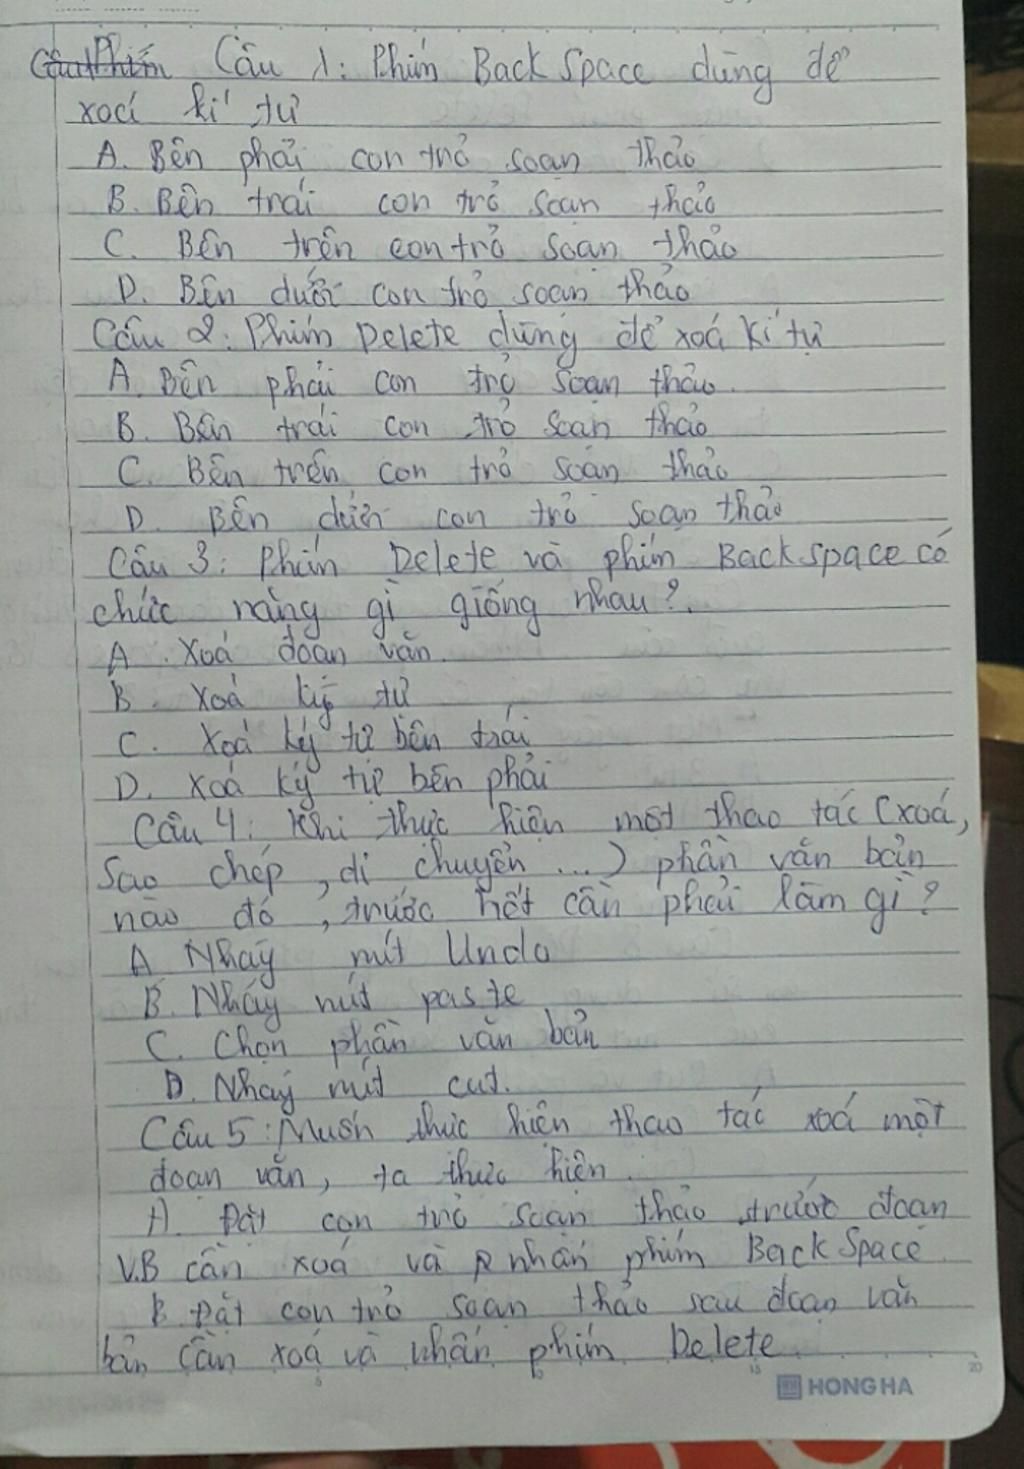 Câu 1: Phím BackSpace dùng để
xoá kí tự
A. Bên phải con trỏ soạn thảo
B. Bên trái con trỏ soạn thảo
C. Bên trên con trỏ soạn thảo
D. Bên dưới con trỏ soạn thảo
Câu 2: Phím Delete dùng để xoá kí tự
A. Bên phải con trỏ soạn thảo.
B. Bên trái con trỏ soạn thảo
C. Bên trên con trỏ soạn thảo
D. Bên dưới con trỏ soạn thảo
Câu 3: Phím Delete và phím Backspace có
chức năng gì giống nhau?.
A. Xoá đoạn văn.
B. Xoá ký tự
C. Xoá ký tự bên trái
D. Xoá ký tự bên phải
Câu 4: Khi thực hiện một thao tác (xoá,
Sao chép, di chuyển ...) phần văn bản
nào đó, trước hết cần phải làm gì?
A Nháy nút Undo
B. Nháy nút paste
C. Chọn phần văn bản
D. Nháy nút cut.
Câu 5: Muốn thực hiện thao tác xoá một
đoạn văn, ta thực hiện.
A. Đặt con trỏ soạn thảo trước đoạn
V.B cần xoá và nhấn phím BackSpace
B. Đặt con trỏ soạn thảo sau đoạn văn
bản cần xoá và nhấn phím Delete.
5 10 15 20
HONG HA